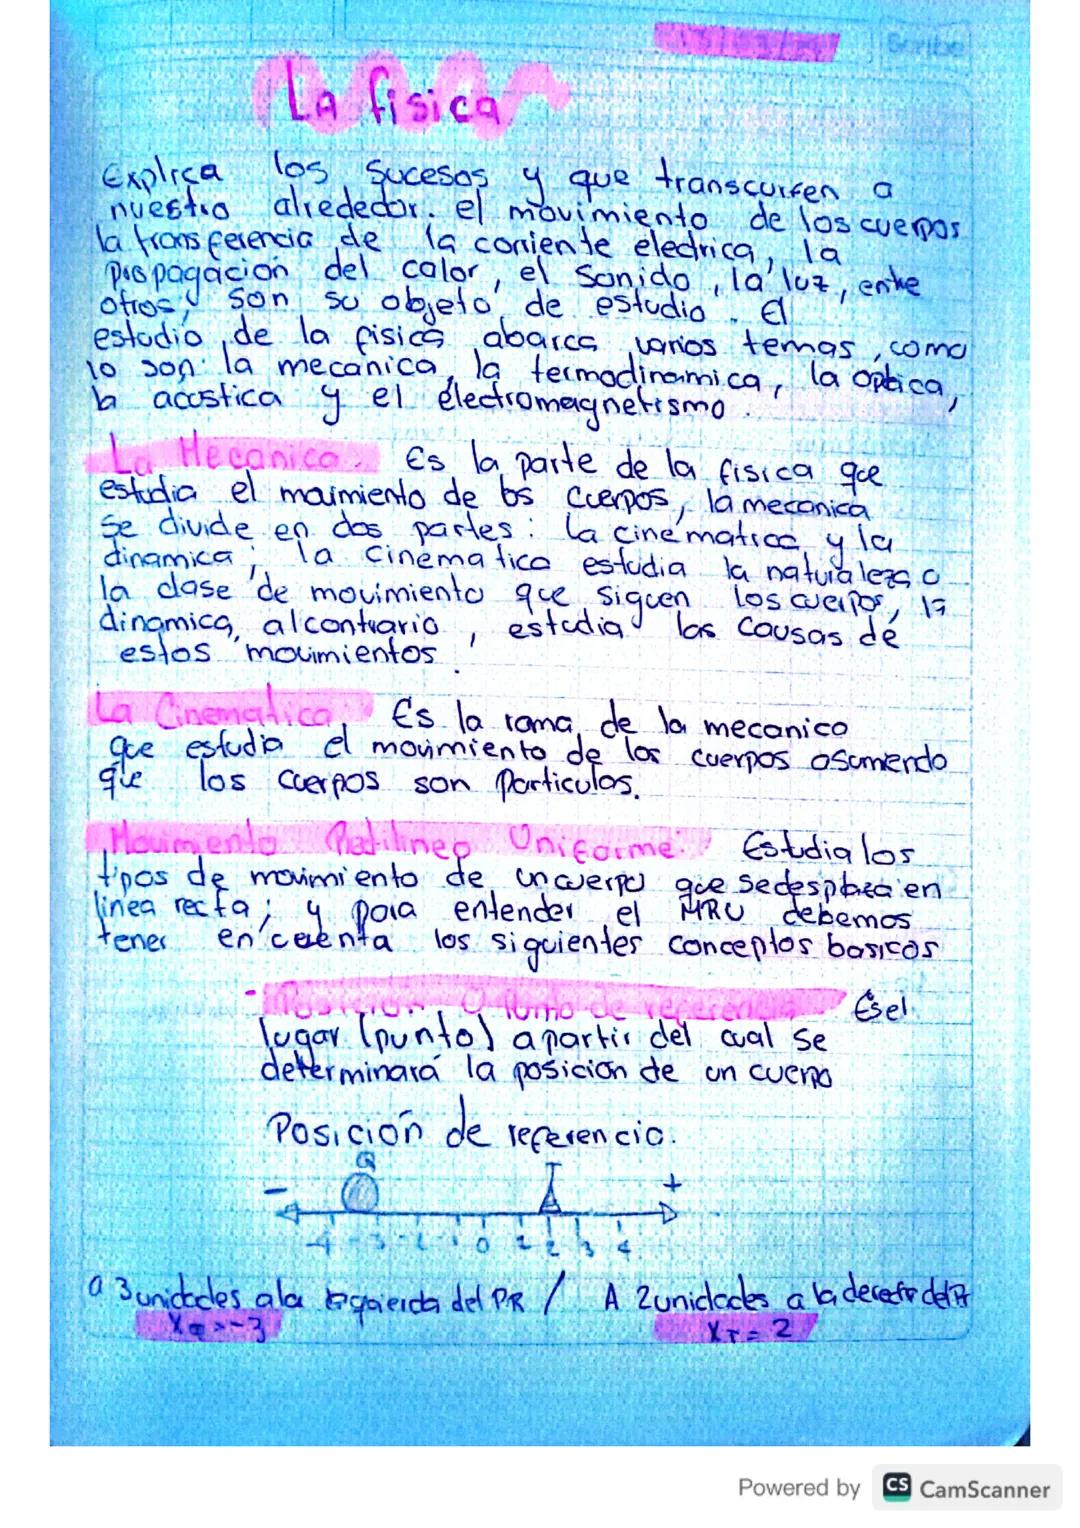 Scribe
La fisica
Explica los sucesos y que transcurren a
nuestro alrededor. el movimiento de los cuerpos
la transferencia de la corriente electrica, la
propagación del calor, el sonido, la luz, entre
otros, son su objeto de estudio. El
estudio de la fisica abarca varios temas, como
lo son: la mecanica, la termodinamica, la optica,
la acustica y el electromagnetismo.
La Mecanica. Es la parte de la fisica que
estudia el moimiento de los cuerpos, la mecanica
se divide en dos partes: la cinematica y la
dinamica; la cinematica estudia la naturaleza o
la clase de movimiento que siguen los cuerpos, la
dinamica, al contrario, estudia las causas de
estos movimientos.
La Cinematica. Es la rama de la mecanico
que estudia el movimiento de los cuerpos asumiendo
que los cuerpos son Particulas.
Movimiento Rectilineo Uniforme: Estudia los
tipos de movimiento de un cuerpo que se desplaza en
linea recta; y para entender el MRU debemos
tener en cuenta los siguientes conceptos basicos
- Posición o Punto de referencia Es el
lugar (punto) apartir del cual se
determinará la posicion de un cuerpo
Posición de referencia.
Q T
- +
-4 -3 -2 -1 0 1 2 3 4
a 3 unidades a la izquierda del PR / A 2 unidades a la derecha del PR
XQ = -3 XT = 2
Powered by CS CamScanner